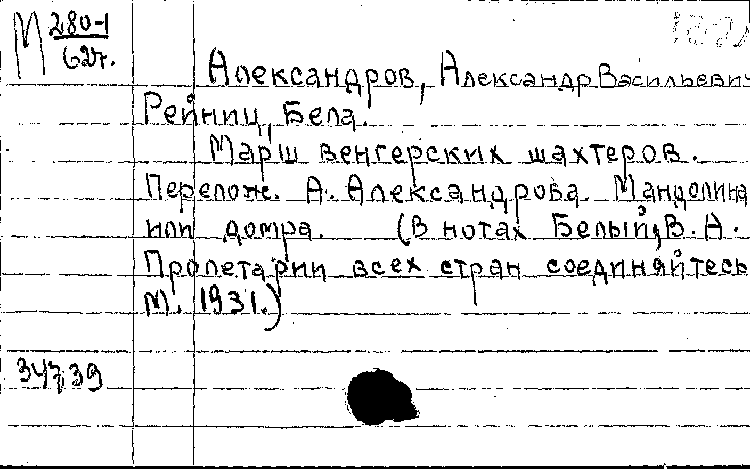 М 280-1
62г.
Александров, Александр Васильевич
Рейниц, Бела.
Марш венгерских шахтеров.
Перелож. А. Александрова. Мандолина
или домра. (В нотах Белый, В. А.
Пролетарии всех стран соединяйтесь
М. 1931.)
347,39